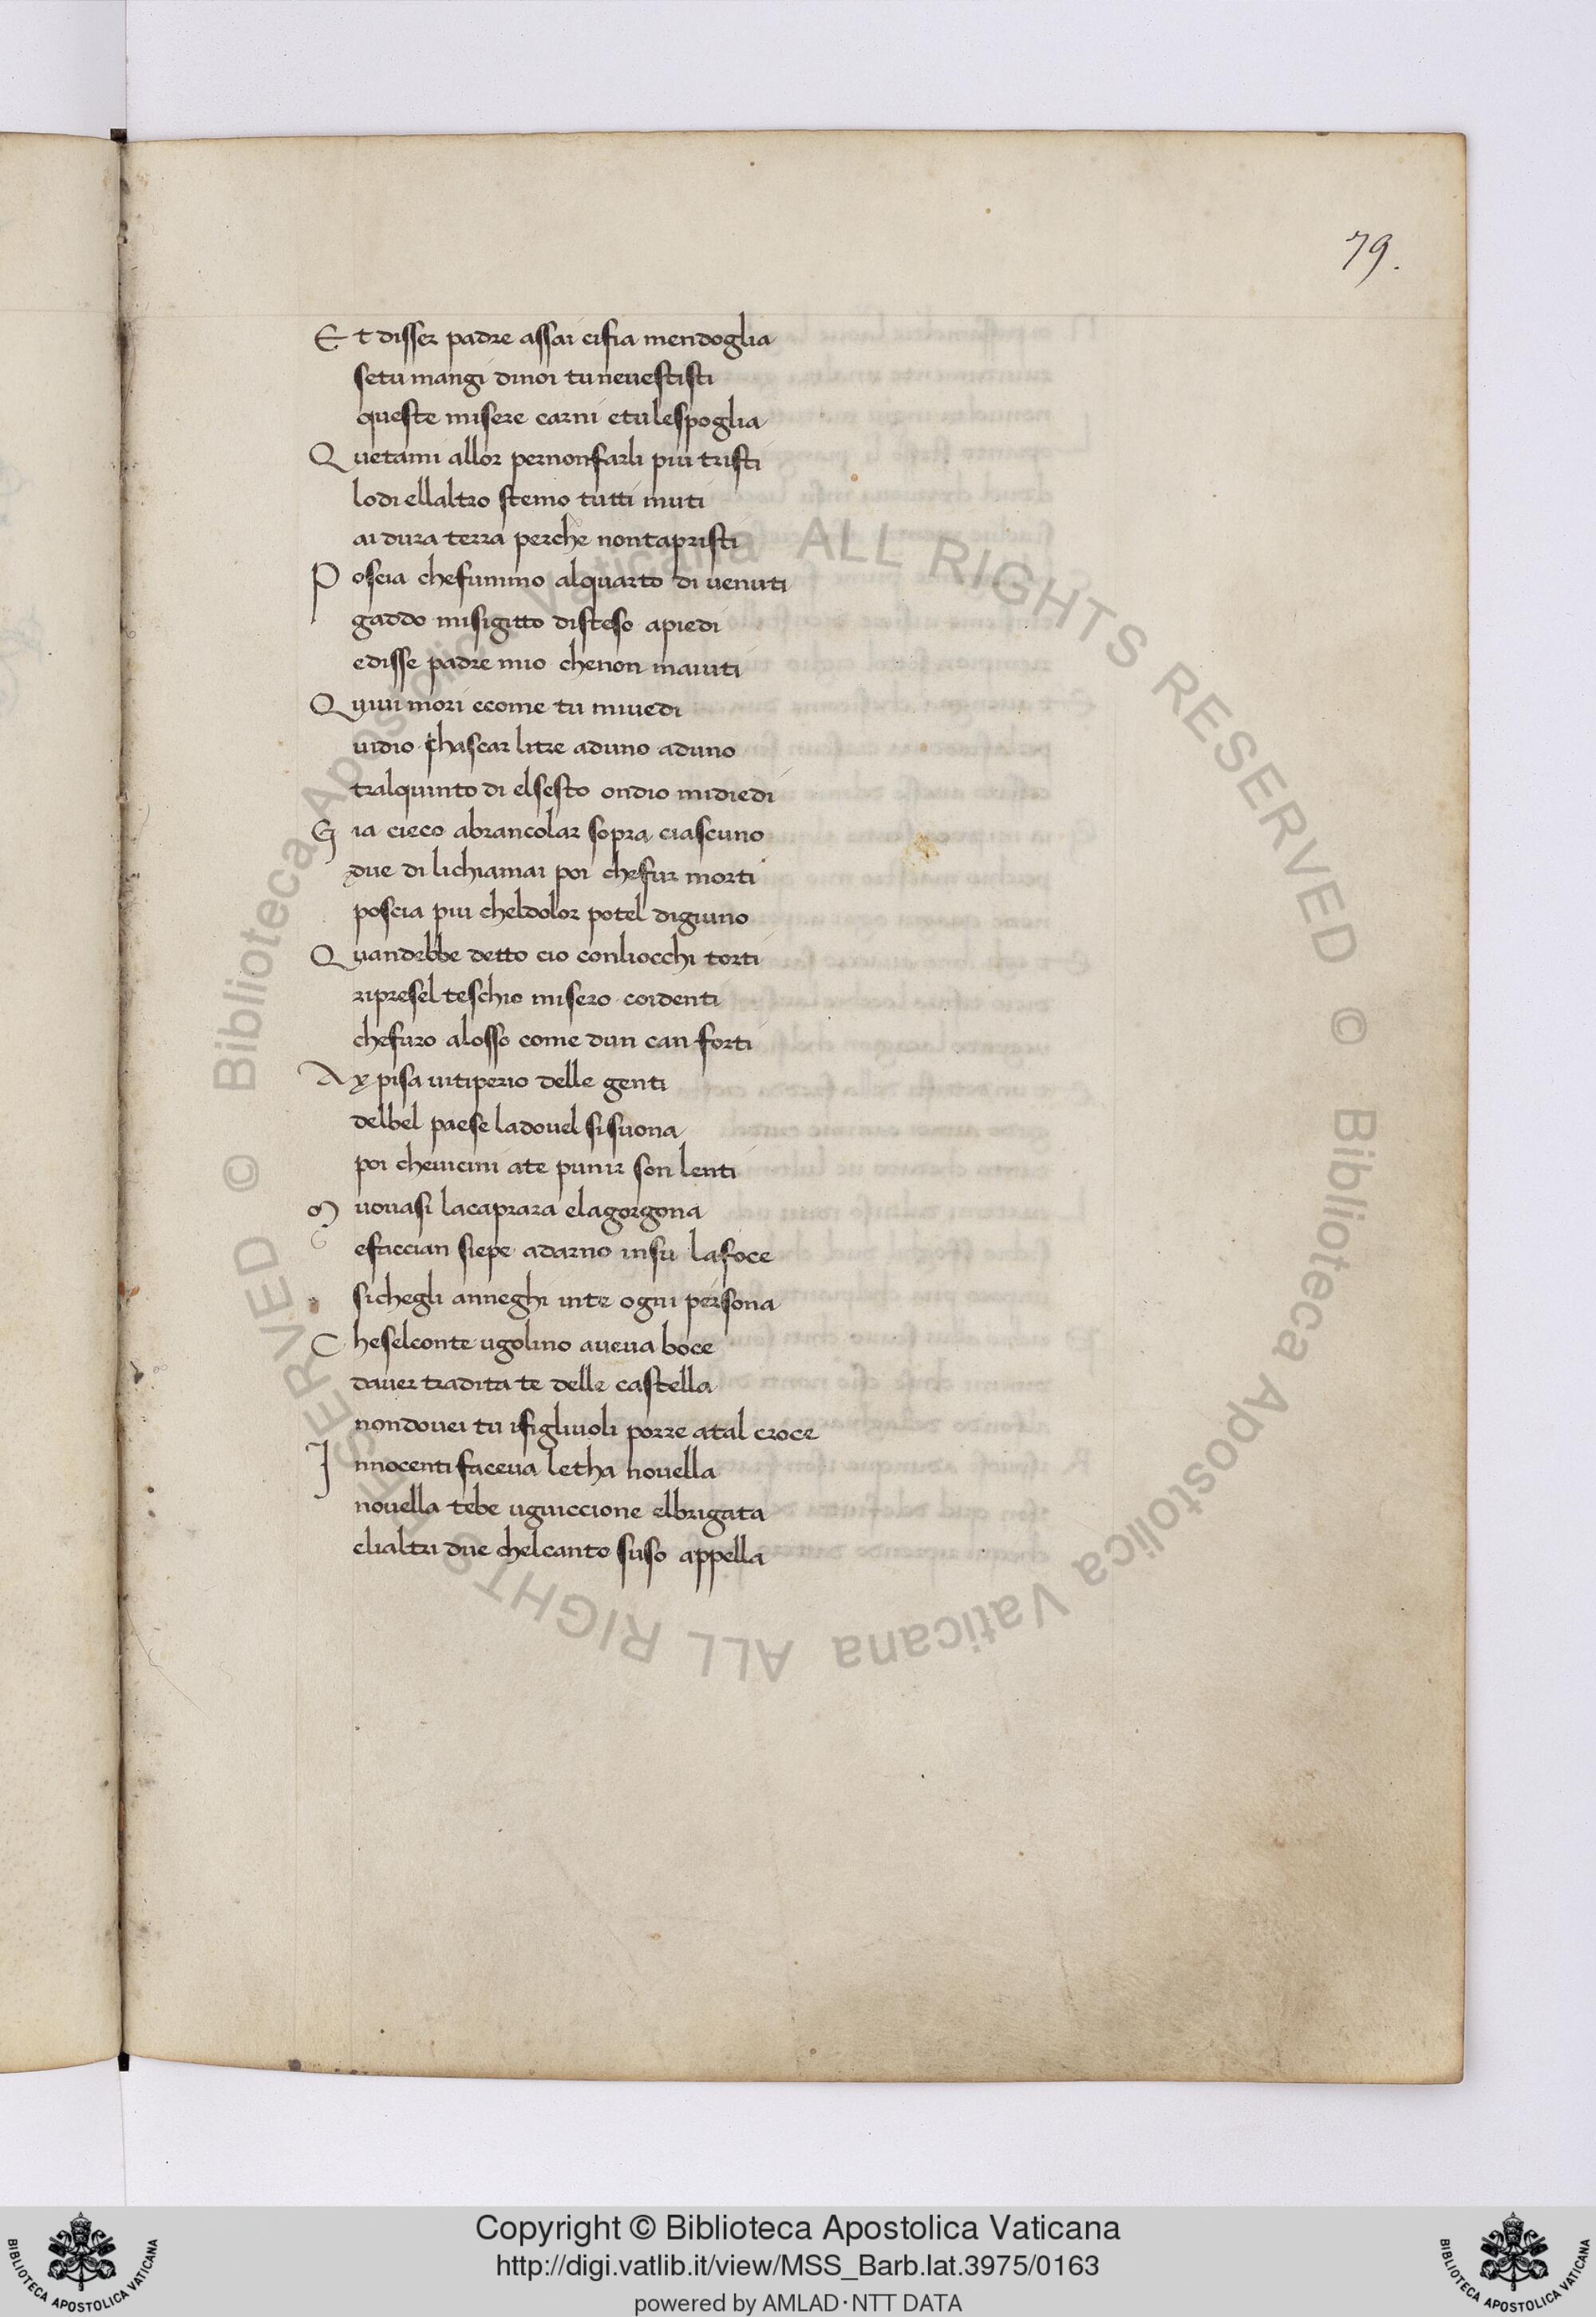 79.
E t disser padre assai cifia mendoglia
setu mangi dinoi tu neuestisti
queste misere carni etulespoglia
Q uetami allor pernonfarli piu tristi
lodi ellaltro stemo tutti muti
ai dura terra perche nontapristi
P oscia chefummo alquarto di uenuti
gaddo misigitto disteso apiedi
edisse padre mio chenon maiuti
Q uiui mori ecome tu miuedi
uidio chascar litre aduno aduno
tralquinto di elsesto ondio midiedi
G ia cieco abrancolar sopra ciascuno
due di lichiamai poi chefur morti
poscia piu cheldolor potel digiuno
Q uandebbe detto cio conliocchi torti
ripresel teschio misero coidenti
chefuro alosso come dun can forti
A y pisa uitiperio delle genti
delbel paese ladouel sisuona
poi cheuicini ate punir son lenti
M uouasi lacaprara elagorgona
efaccian siepe adarno insu lafoce
sichegli anneghi inte ogni persona
C heselconte ugolino aueua boce
dauer tradita te delle castella
nondouei tu ifigliuoli porre atal croce
I nnocenti faceua letha nouella
nouella tebe uguiccione elbrigata
elialtri due chelcanto suso appella
© Biblioteca Apostolica Vaticana ALL RIGHTS RESERVED © Biblioteca Apostolica Vaticana ALL RIGHTS RESERVED
BIBLIOTECA APOSTOLICA VATICANA
Copyright © Biblioteca Apostolica Vaticana
http://digi.vatlib.it/view/MSS_Barb.lat.3975/0163
powered by AMLAD·NTT DATA
BIBLIOTECA APOSTOLICA VATICANA